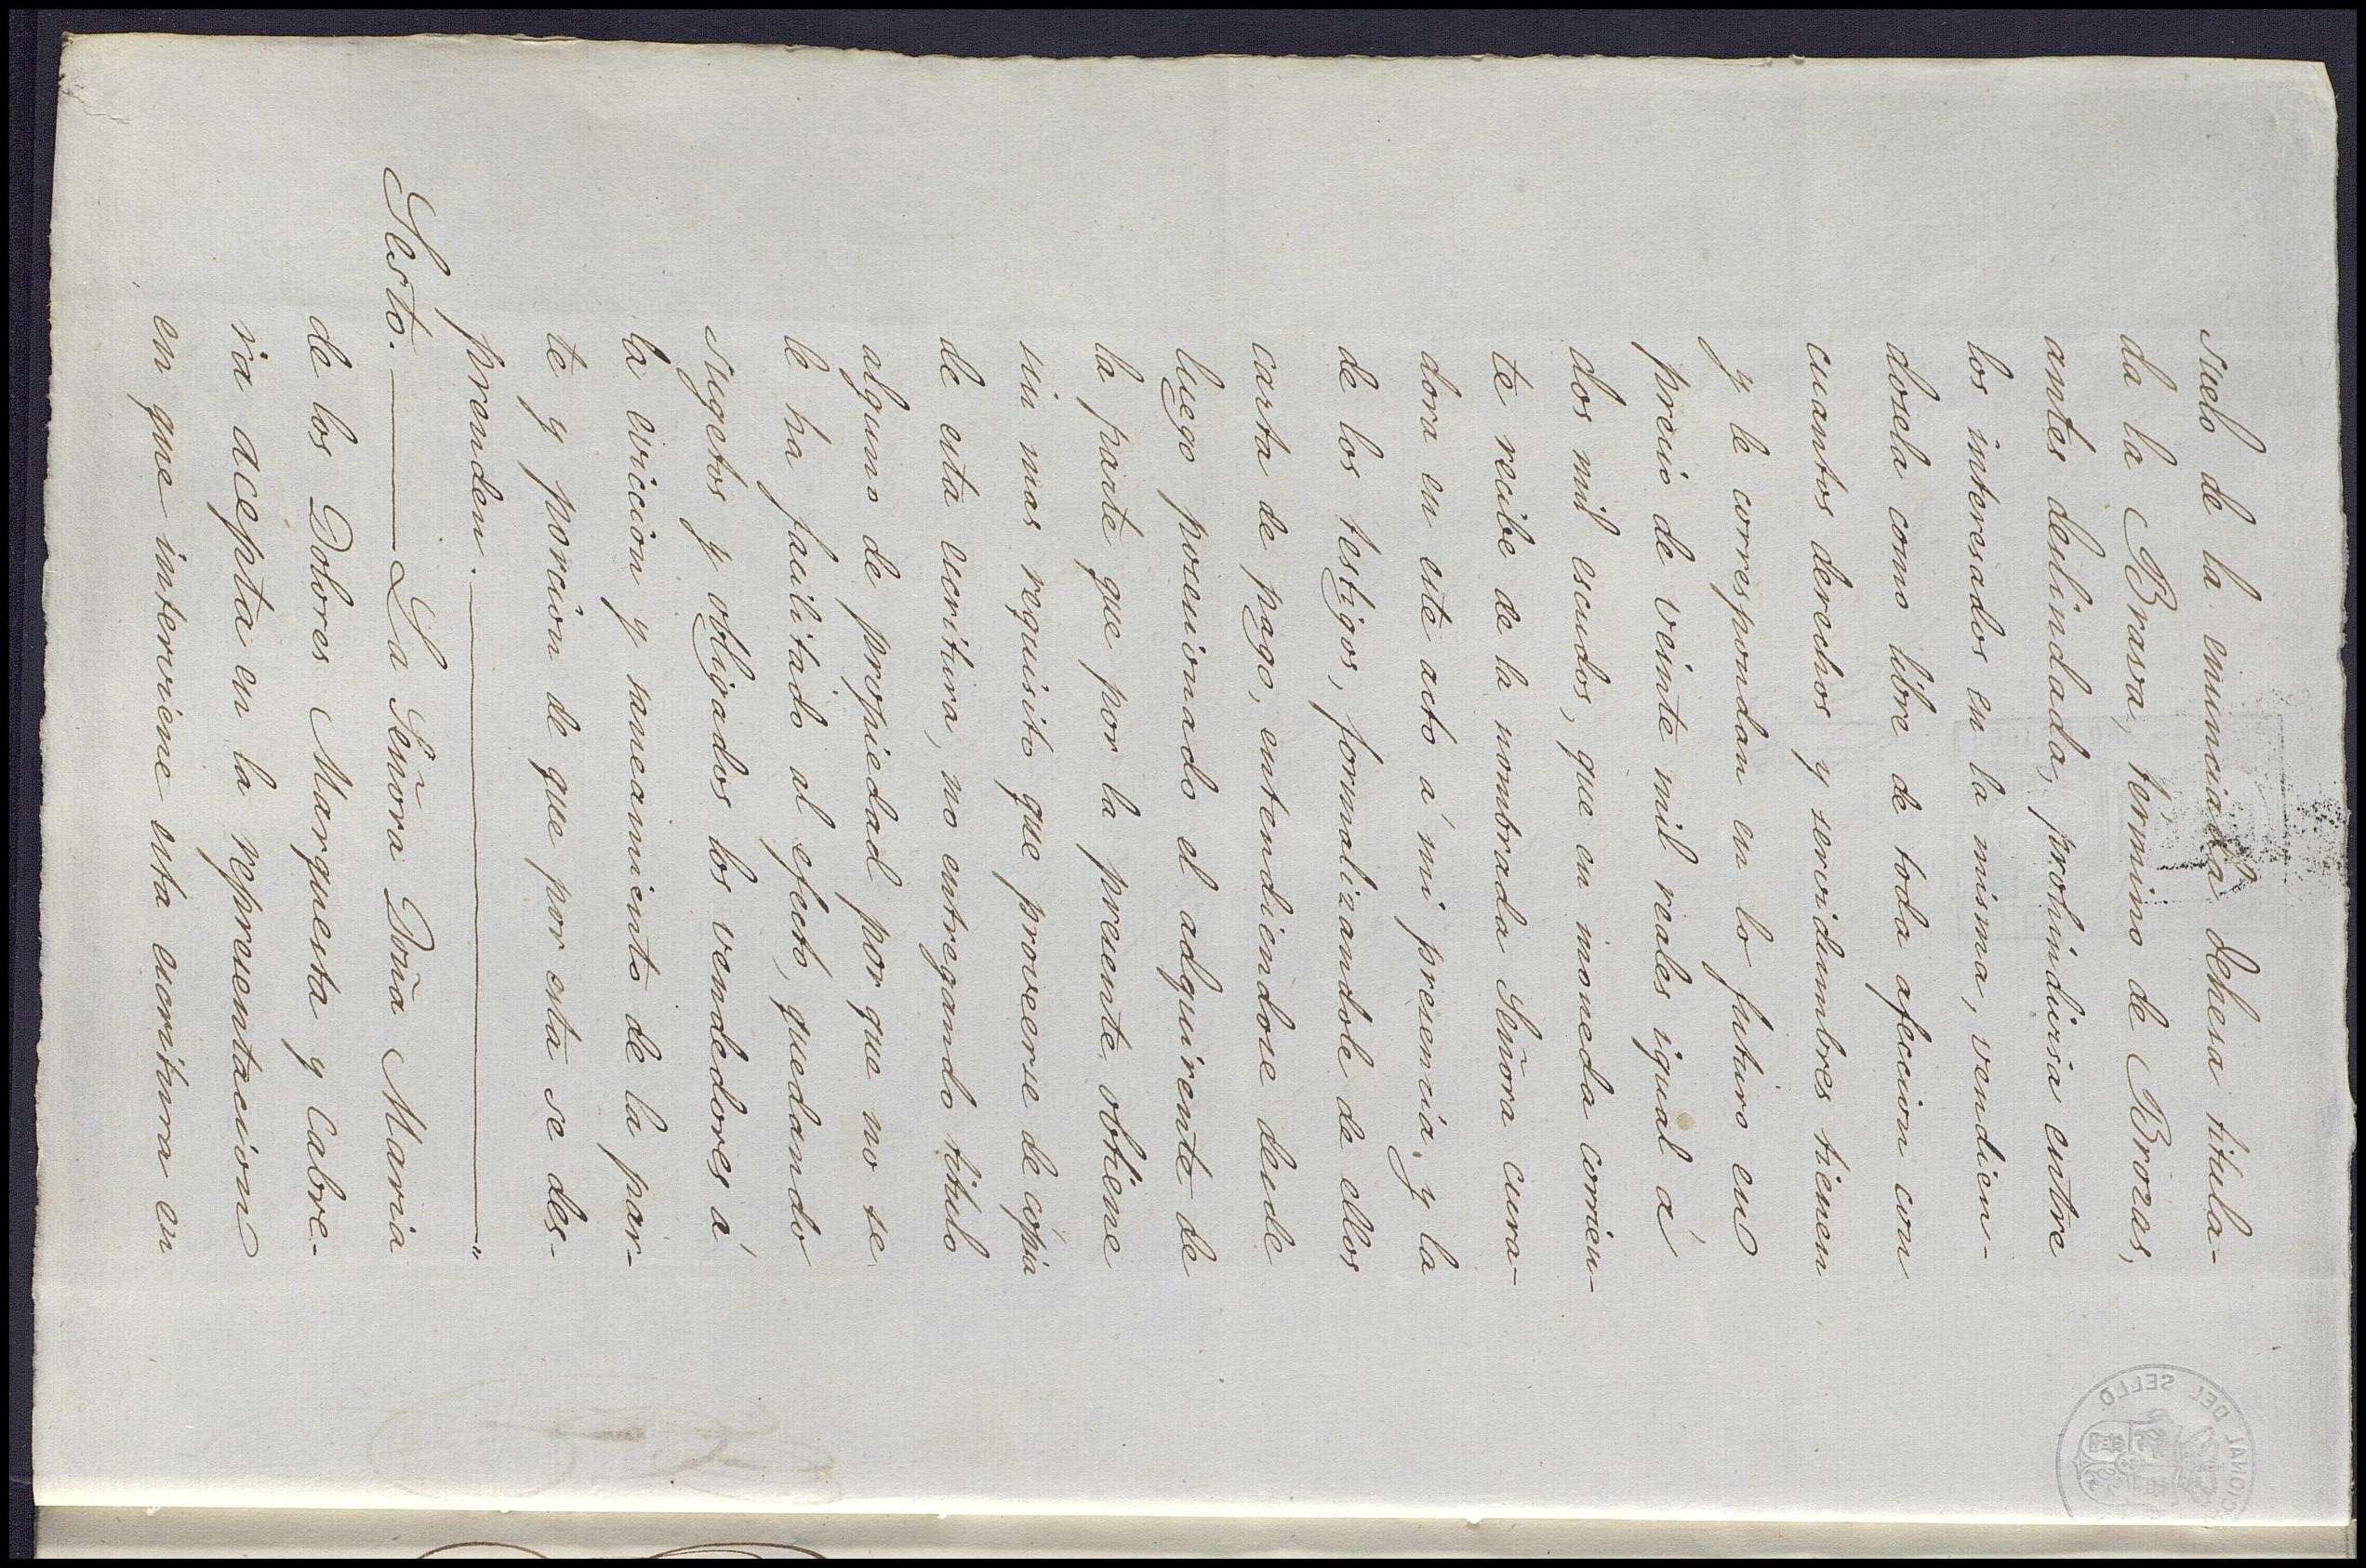 suelo de la enunciada dehesa titula-
da la Brasva, término de Brozas,
antes deslindada, prohindivisa entre
los interesados en la misma, vendien-
dosela como libre de toda afeccion con
cuantos derechos y servidumbres tienen
y le correspondan en lo futuro en
precio de veinte mil reales igual á
dos mil escudos, que en moneda corrien-
te recibe de la nombrada Señora cura-
dora en este acto á mi presencia y la
de los testigos, formalizandole de ellos
carta de pago, entendiendose desde
luego posesionado el adquirente de
la parte que por la presente obtiene
sin mas requisito que proveerse de cópia
de esta escritura, no entregando título
alguno de propiedad por que no se
le ha facilitado al efecto, quedando
sugetos y obligados los vendedores á
la eviccion y saneamiento de la par-
te y porcion de que por esta se des-
prenden.
Sesto. La Señora Doña Maria
de los Dolores Marquesta y Cabre-
ra acepta en la representacion
en que interviene esta escritura en
DEL SELLO